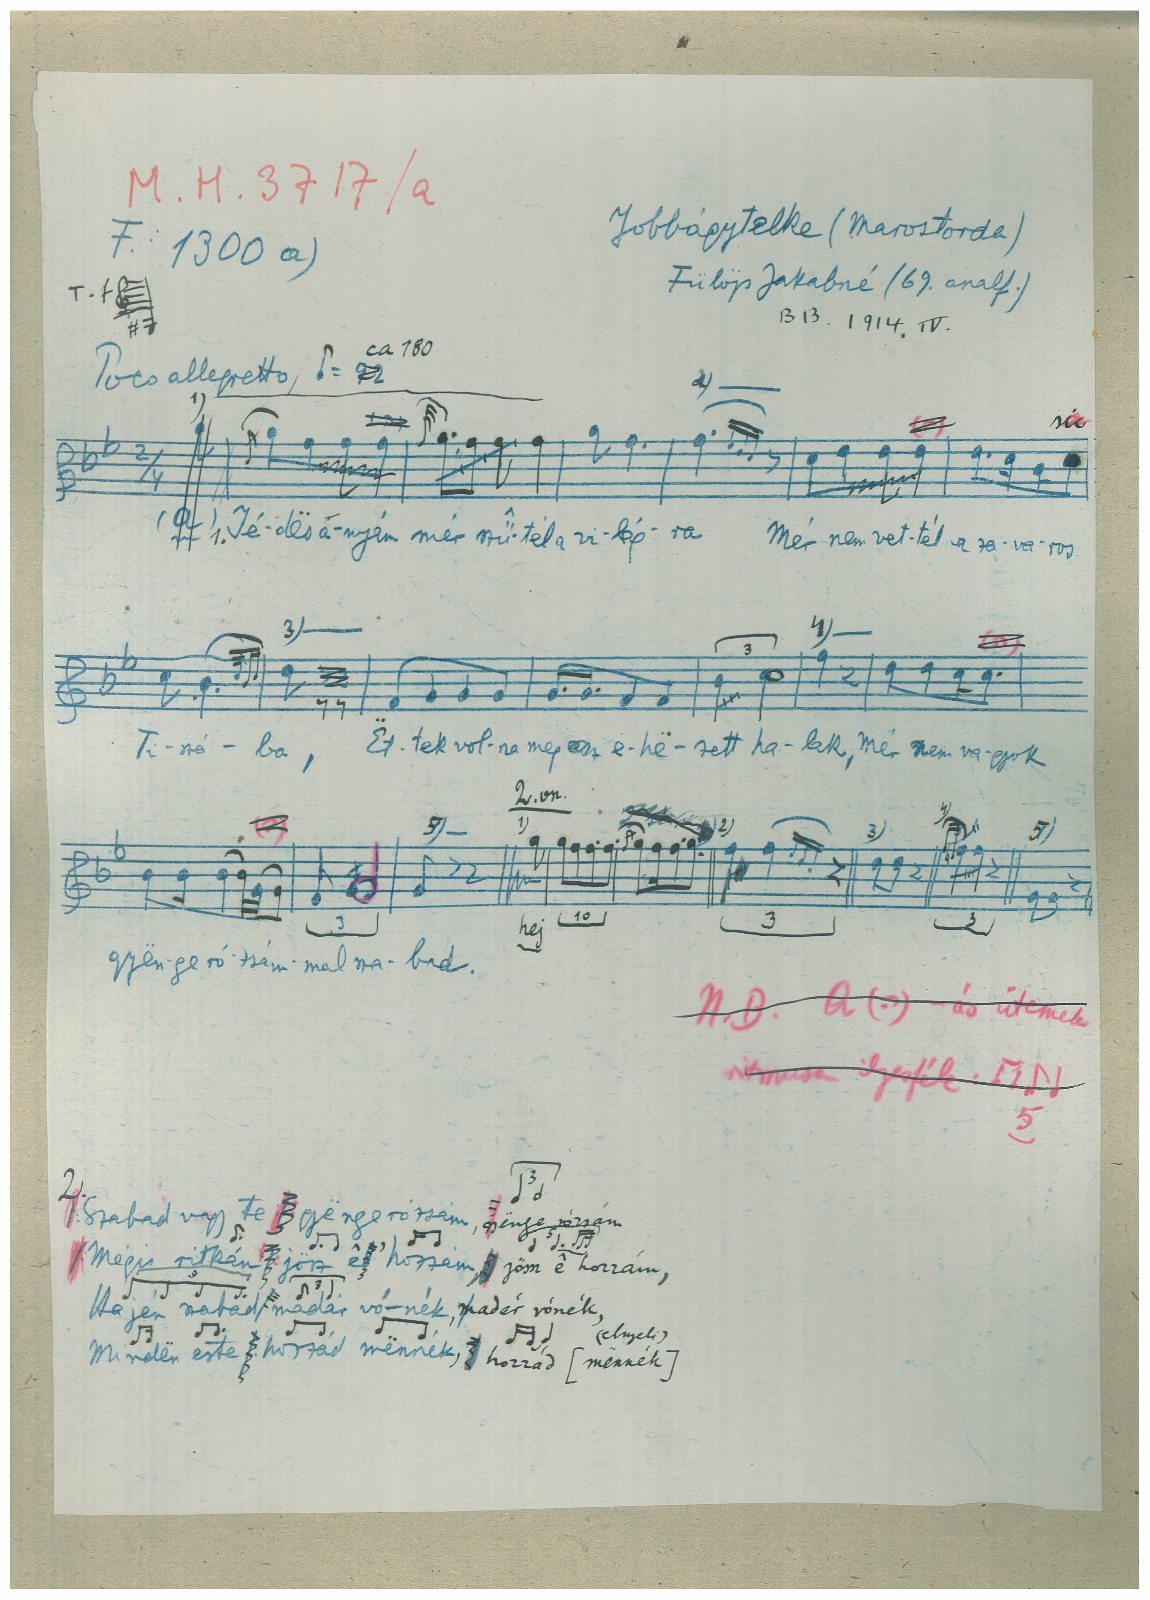 M. H. 3717/a
F.: 1300 a)
Jobbágytelke (Marostorda)
Fülöp Jakabné (69. analf.)
BB. 1914. IV.
T. f
Poco allegretto, ca 180
1)
2)
sic
2/4
(2.) 1. Jé-dës á-nyám mér szű-tél a vi-lág-ra Mér nem vet-tél a za-va-ros
3)
3
4)
Ti-szá-ba, Ët-tek vol-na meg az e-hë-zett ha-lak, Mér nem va-gyok
5)
2. vsz.
1)
2)
3)
4)
5)
hej
10
3
3
3
gyën-ge ró-zsám-mal sza-bad.
N.B. A (..) -ás ütemek
ritmusa ilyesféle.
5
2.
3
Szabad vagy te gyënge rózsám, gyënge rózsám
Mégis ritkán jösz ê hozzám, jösz ê hozzám,
Ha jén szabad madár vó-nék, madár vónék,
Mindën este hozzád mënnék, hozzád [mënnék]
(elnyeli)